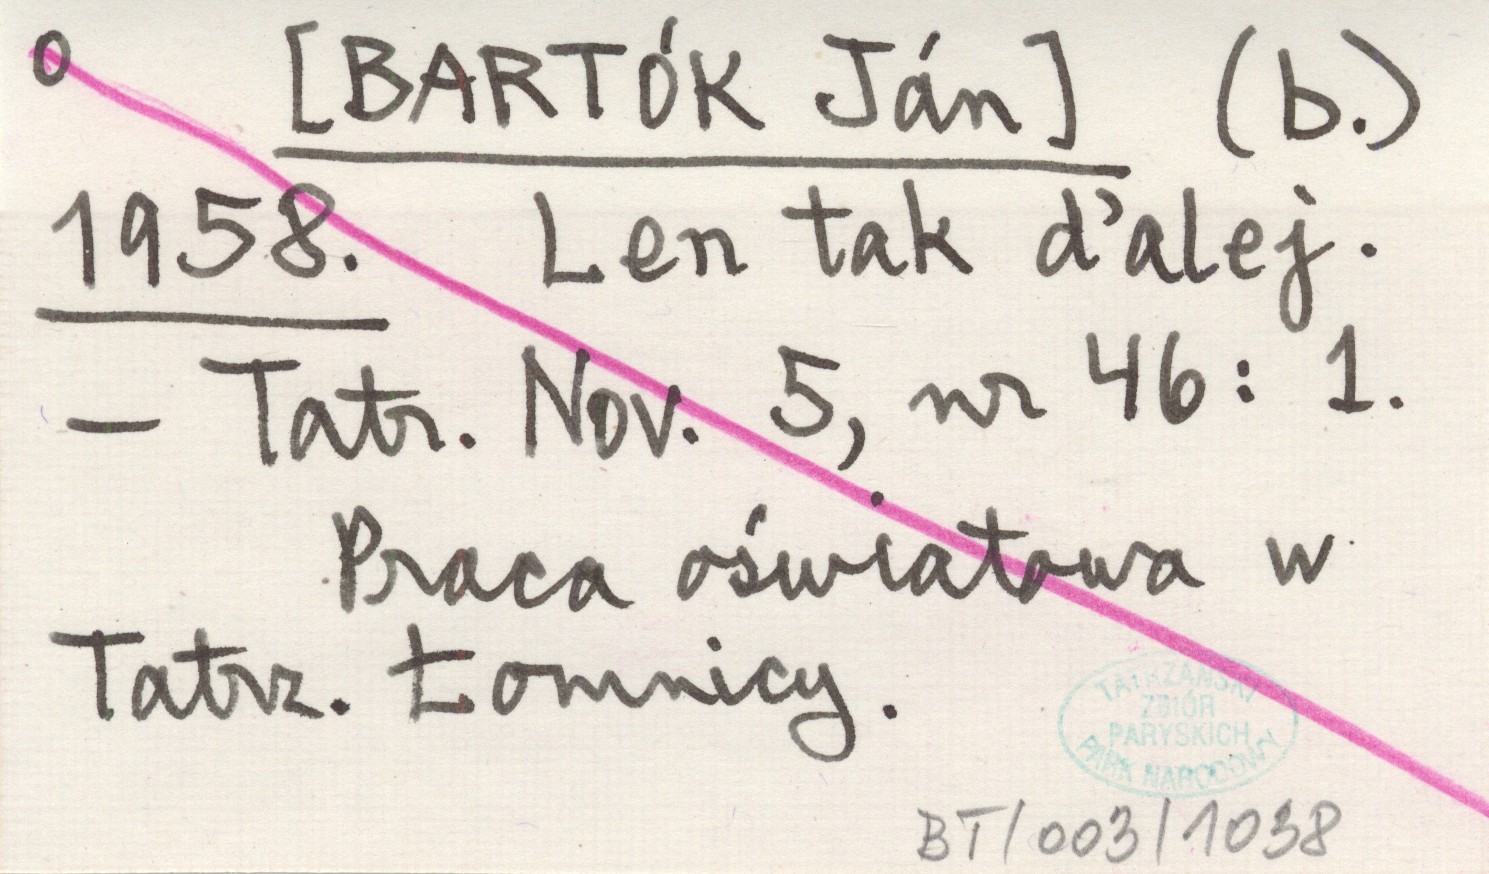 o [BARTÓK Ján] (b.)
1958. Len tak ďalej.
— Tatr. Nov. 5, nr 46: 1.
Praca oświatowa w
Tatrz. Łomnicy.
TATRZAŃSKI
ZBIÓR
PARYSKICH
PARK NARODOWY
BT/003/1038